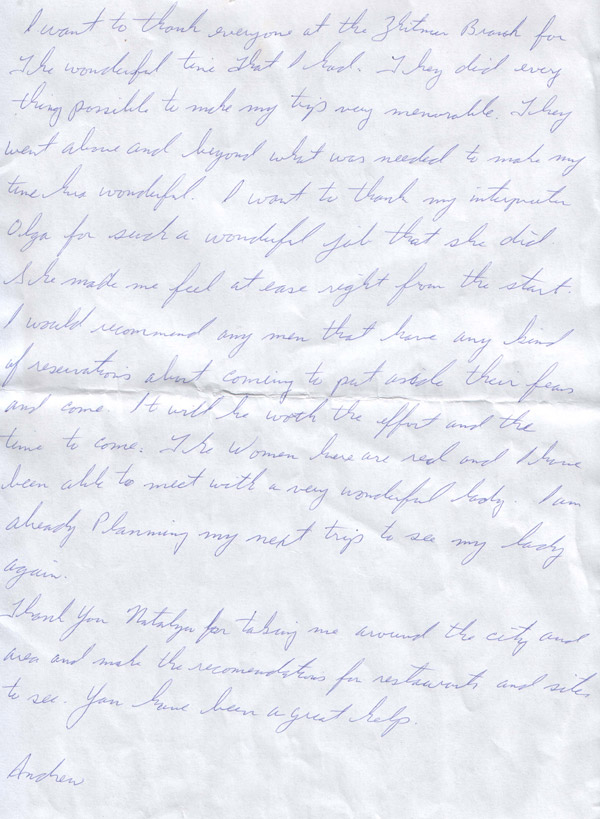 I want to thank everyone at the Zhitmer Branch for
The wonderful time that I had. They did every
thing possible to make my trip very memorable. They
went above and beyond what was needed to make my
time here wonderful. I want to thank my interpreter
Olga for such a wonderful job that she did
She made me feel at ease right from the start.
I would recommend any men that have any kind
of reservations about coming to put aside their fears
and come. It will be worth the effort and the
time to come. The Women here are real and I have
been able to meet with a very wonderful lady. I am
already Planning my next trip to see my lady
again.
Thank You Natalya for taking me around the city and
area and make the recomendations for restaurants and sites
to see. You have been a great help.
Andrew